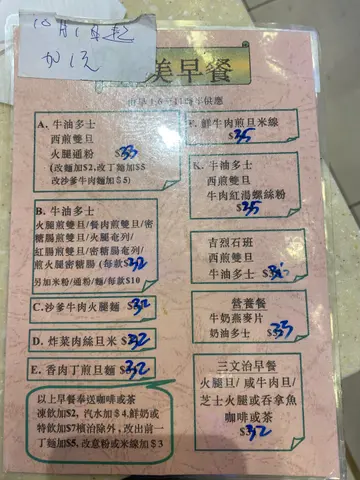 10月1日起
加1元
美早餐
A. 牛油多士
西煎雙旦
火腿通粉 $33
(改麵加$2,改丁麵加$5
改沙爹牛肉麵加$5)
B. 牛油多士
火腿煎雙旦/餐肉煎雙旦/密
糖腸煎雙旦/火腿奄列/
紅腸煎雙旦/密糖腸奄列/
煎火腿密糖腸 (每款$32
另加米粉/通粉/麵/每款$10
C.沙爹牛肉火腿麵 $32
D. 炸菜肉絲旦米 $32
E. 香肉丁煎旦麵 $32
以上早餐奉送咖啡或茶
凍飲加$2, 汽水加$4,鮮奶或
特飲加$7檳治除外, 改出前一
丁麵加$5, 改意粉或米線加$3
鮮牛肉煎旦米線
$35
K. 牛油多士
西煎雙旦
牛肉紅湯螺絲粉
$35
吉烈石班
西煎雙旦
牛油多士
營養餐
牛奶燕麥片
奶油多士 $33
三文治早餐
火腿旦/ 咸牛肉旦/
芝士火腿或吞拿魚
咖啡或茶
$32